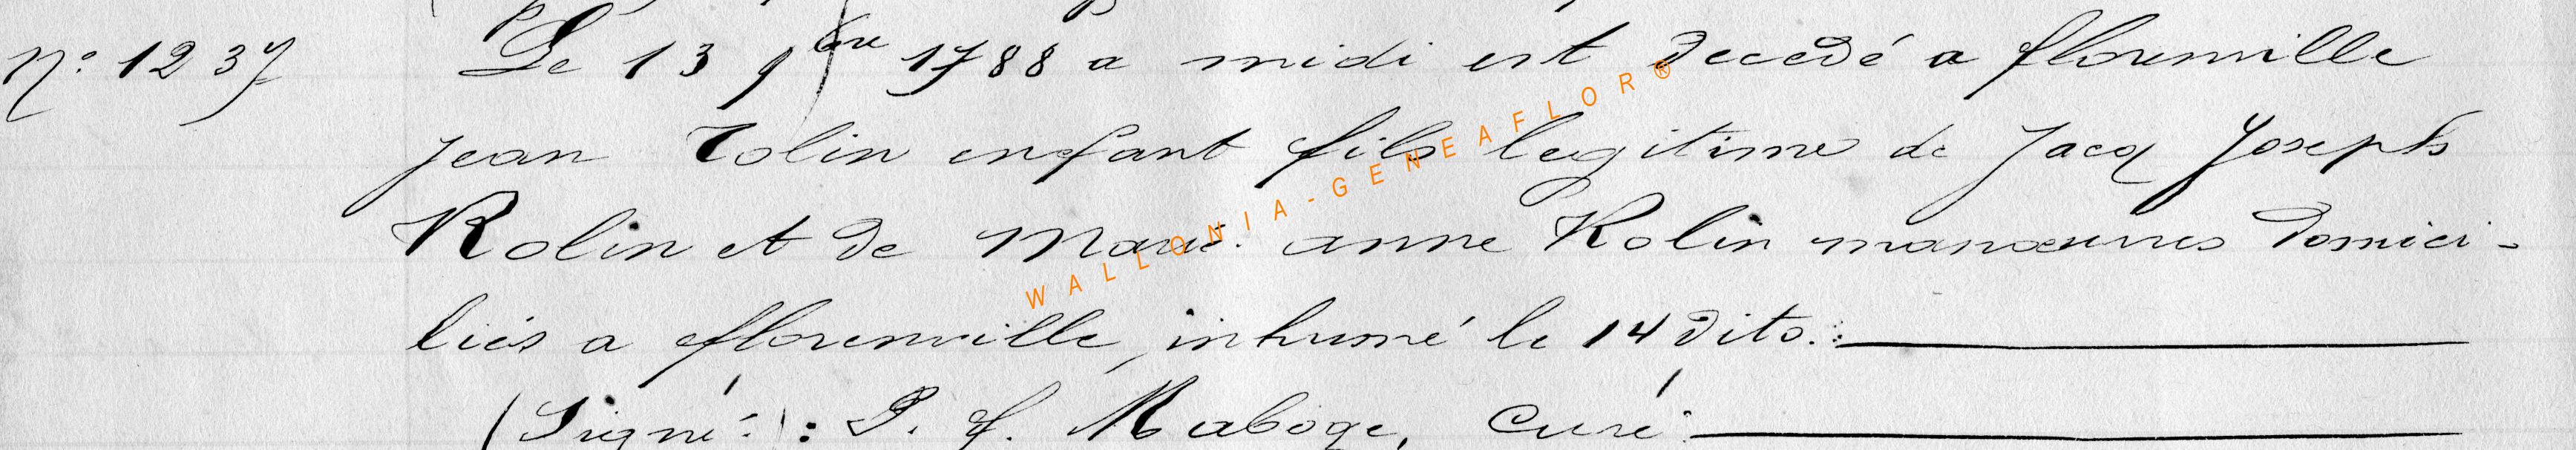 N° 1237 Le 13 9bre 1788 a midi est decedé a florenville
jean Rolin enfant fils legitime de Jacq Joseph
Rolin et de Marie anne Rolin manœuvres domici-
liés a florenville, inhumé le 14 dito.:
(Signé:): P. f. Maboge, Curé.
WALLONIA-GENEAFLOR®